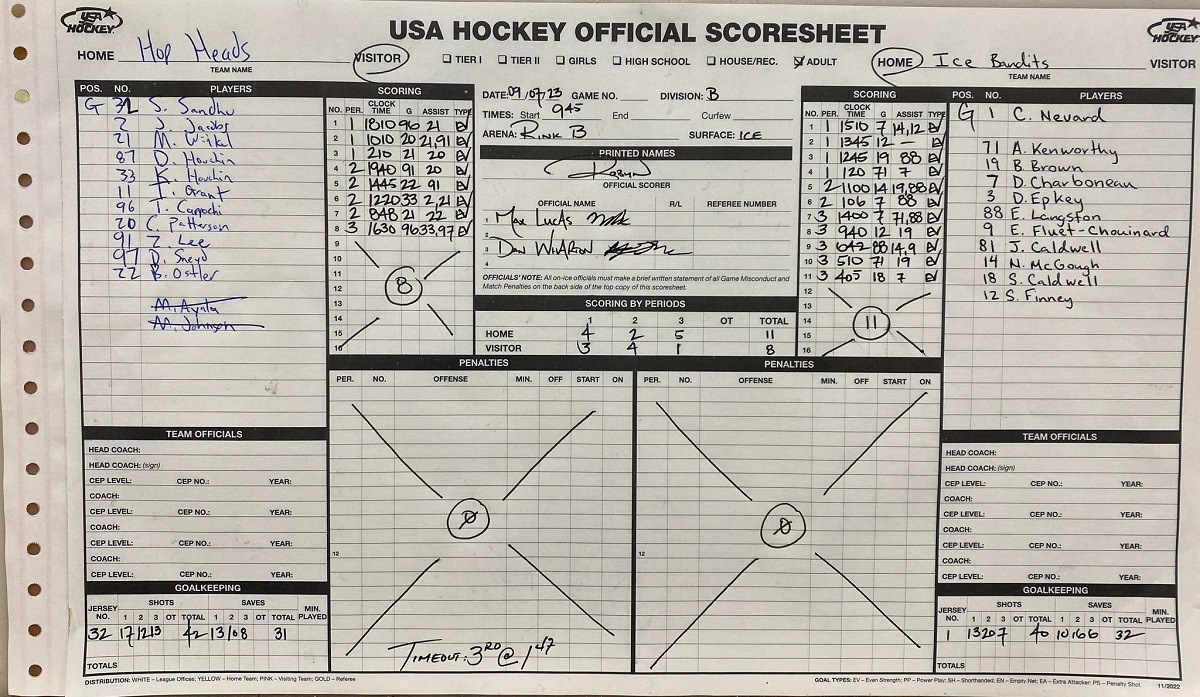 USA HOCKEY
USA HOCKEY OFFICIAL SCORESHEET
USA HOCKEY
HOME Hop Heads VISITOR
TEAM NAME
☐ TIER I ☐ TIER II ☐ GIRLS ☐ HIGH SCHOOL ☐ HOUSE/REC. ☑ ADULT
HOME Ice Bandits VISITOR
TEAM NAME
POS. NO. PLAYERS
G 32 S. Sandhu
2 J. Jacobs
21 M. Winkel
87 D. Houchin
33 K. Houchin
11 T. Grant
96 T. Capochi
20 C. Patterson
91 Z. Lee
97 D. Sneyd
22 B. Ostler
M. Ayala
M. Johnson
SCORING
NO. PER. CLOCK TIME G ASSIST TYPE
1 1 1810 96 21 EV
2 1 1010 20 21,91 EV
3 1 210 21 20 EV
4 2 1940 91 20 EV
5 2 1445 22 91 EV
6 2 1220 33 2,21 EV
7 2 848 21 22 EV
8 3 1630 96 33,97 EV
9
10
11
12
13
14
15
16
8
DATE: 09/07/23 GAME NO. DIVISION: B
TIMES: Start 945 End Curfew
ARENA: RINK B SURFACE: ICE
PRINTED NAMES
OFFICIAL SCORER
OFFICIAL NAME R/L REFEREE NUMBER
1 Max Lucas
2
3 Dan Wharton
4
OFFICIALS' NOTE: All on-ice officials must make a brief written statement of all Game Misconduct and
Match Penalties on the back side of the top copy of this scoresheet.
SCORING BY PERIODS
1 2 3 OT TOTAL
HOME 4 2 5 11
VISITOR 3 4 1 8
SCORING
NO. PER. CLOCK TIME G ASSIST TYPE
1 1 1510 7 14,12 EV
2 1 1345 12 — EV
3 1 1245 19 88 EV
4 1 120 71 7 EV
5 2 1100 14 19,88 EV
6 2 106 7 88 EV
7 3 1400 7 71,88 EV
8 3 940 12 19 EV
9 3 642 88 14,9 EV
10 3 510 71 19 EV
11 3 405 18 7 EV
12
13
14
15
16
11
POS. NO. PLAYERS
G 1 C. Nevard
71 A. Kenworthy
19 B. Brown
7 D. Charboneau
3 D. Epkey
88 E. Langston
9 E. Fluet-Chouinard
81 J. Caldwell
14 N. McGough
18 S. Caldwell
12 S. Finney
PENALTIES
PER. NO. OFFENSE MIN. OFF START ON
12
0
TIMEOUT: 3RD @ 1 47
PENALTIES
PER. NO. OFFENSE MIN. OFF START ON
12
0
TEAM OFFICIALS
HEAD COACH:
HEAD COACH: (sign)
CEP LEVEL: CEP NO.: YEAR:
COACH:
CEP LEVEL: CEP NO.: YEAR:
COACH:
CEP LEVEL: CEP NO.: YEAR:
COACH:
CEP LEVEL: CEP NO.: YEAR:
GOALKEEPING
JERSEY NO. SHOTS SAVES MIN. PLAYED
1 2 3 OT TOTAL 1 2 3 OT TOTAL
32 17 12 13 42 13 10 8 31
TOTALS
TEAM OFFICIALS
HEAD COACH:
HEAD COACH: (sign)
CEP LEVEL: CEP NO.: YEAR:
COACH:
CEP LEVEL: CEP NO.: YEAR:
COACH:
CEP LEVEL: CEP NO.: YEAR:
COACH:
CEP LEVEL: CEP NO.: YEAR:
GOALKEEPING
JERSEY NO. SHOTS SAVES MIN. PLAYED
1 2 3 OT TOTAL 1 2 3 OT TOTAL
1 13 20 7 40 10 16 6 32
TOTALS
DISTRIBUTION: WHITE – League Offices; YELLOW – Home Team; PINK – Visiting Team; GOLD – Referee
GOAL TYPES: EV – Even Strength; PP – Power Play; SH – Shorthanded; EN – Empty Net; EA – Extra Attacker; PS – Penalty Shot 11/2022